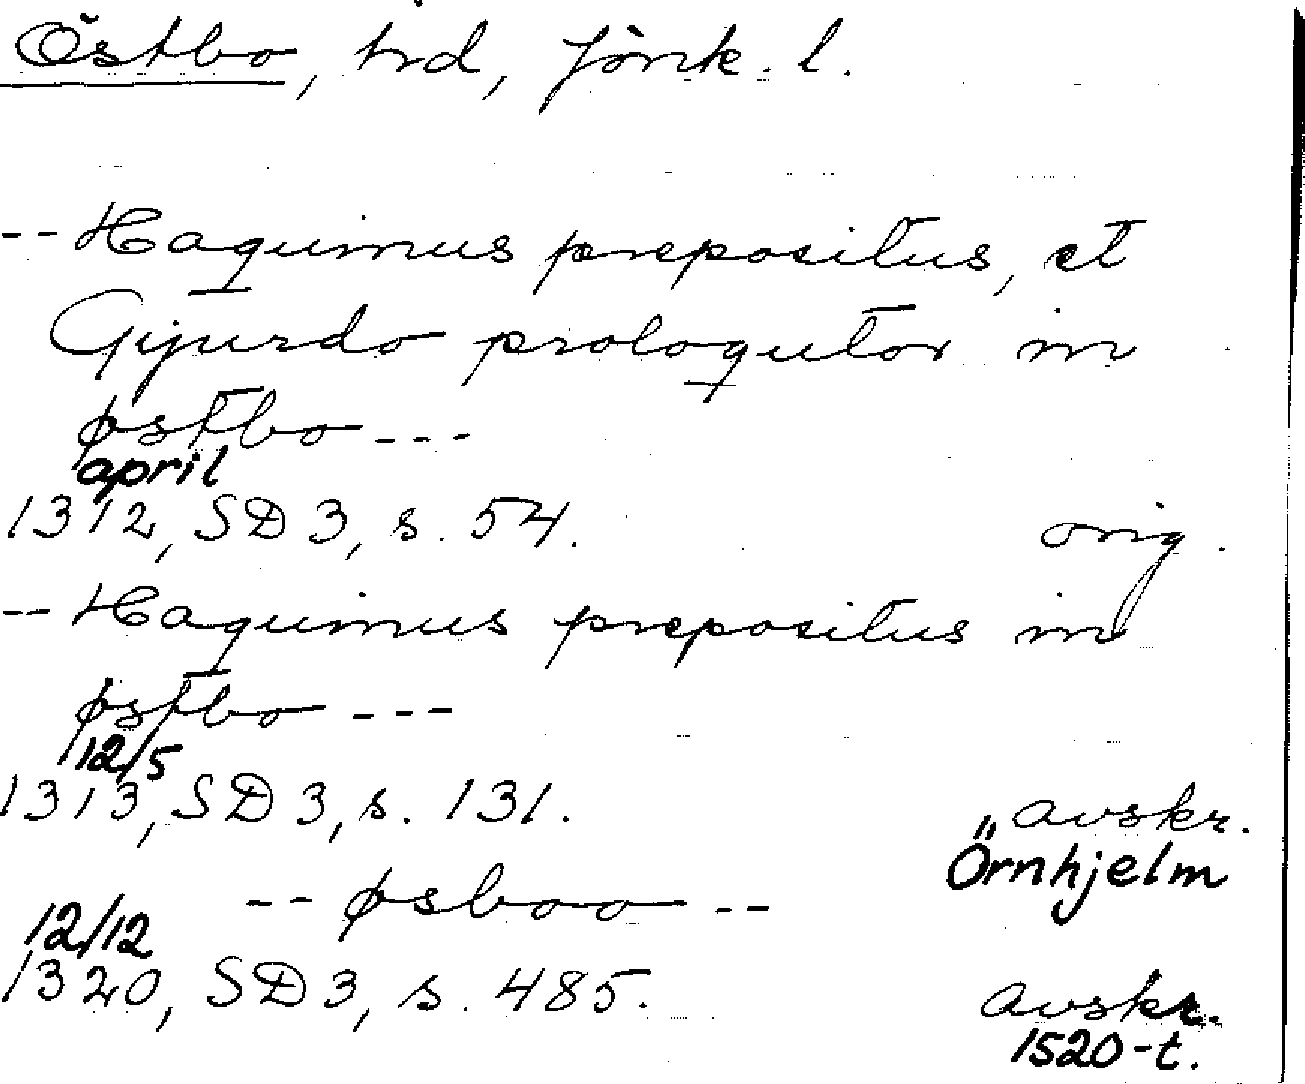 Östbo, hrd, Jönk. l.
-- Haquinus prepositus, et
Gyurdo proloqutor in
østbo ---
april
1312, SD 3, s. 54. orig.
-- Haquinus prepositus in
østbo ---
12/5
1313, SD 3, s. 131. avskr.
Örnhjelm
-- øsboo --
12/12
1320, SD 3, s. 485. avskr.
1520-t.